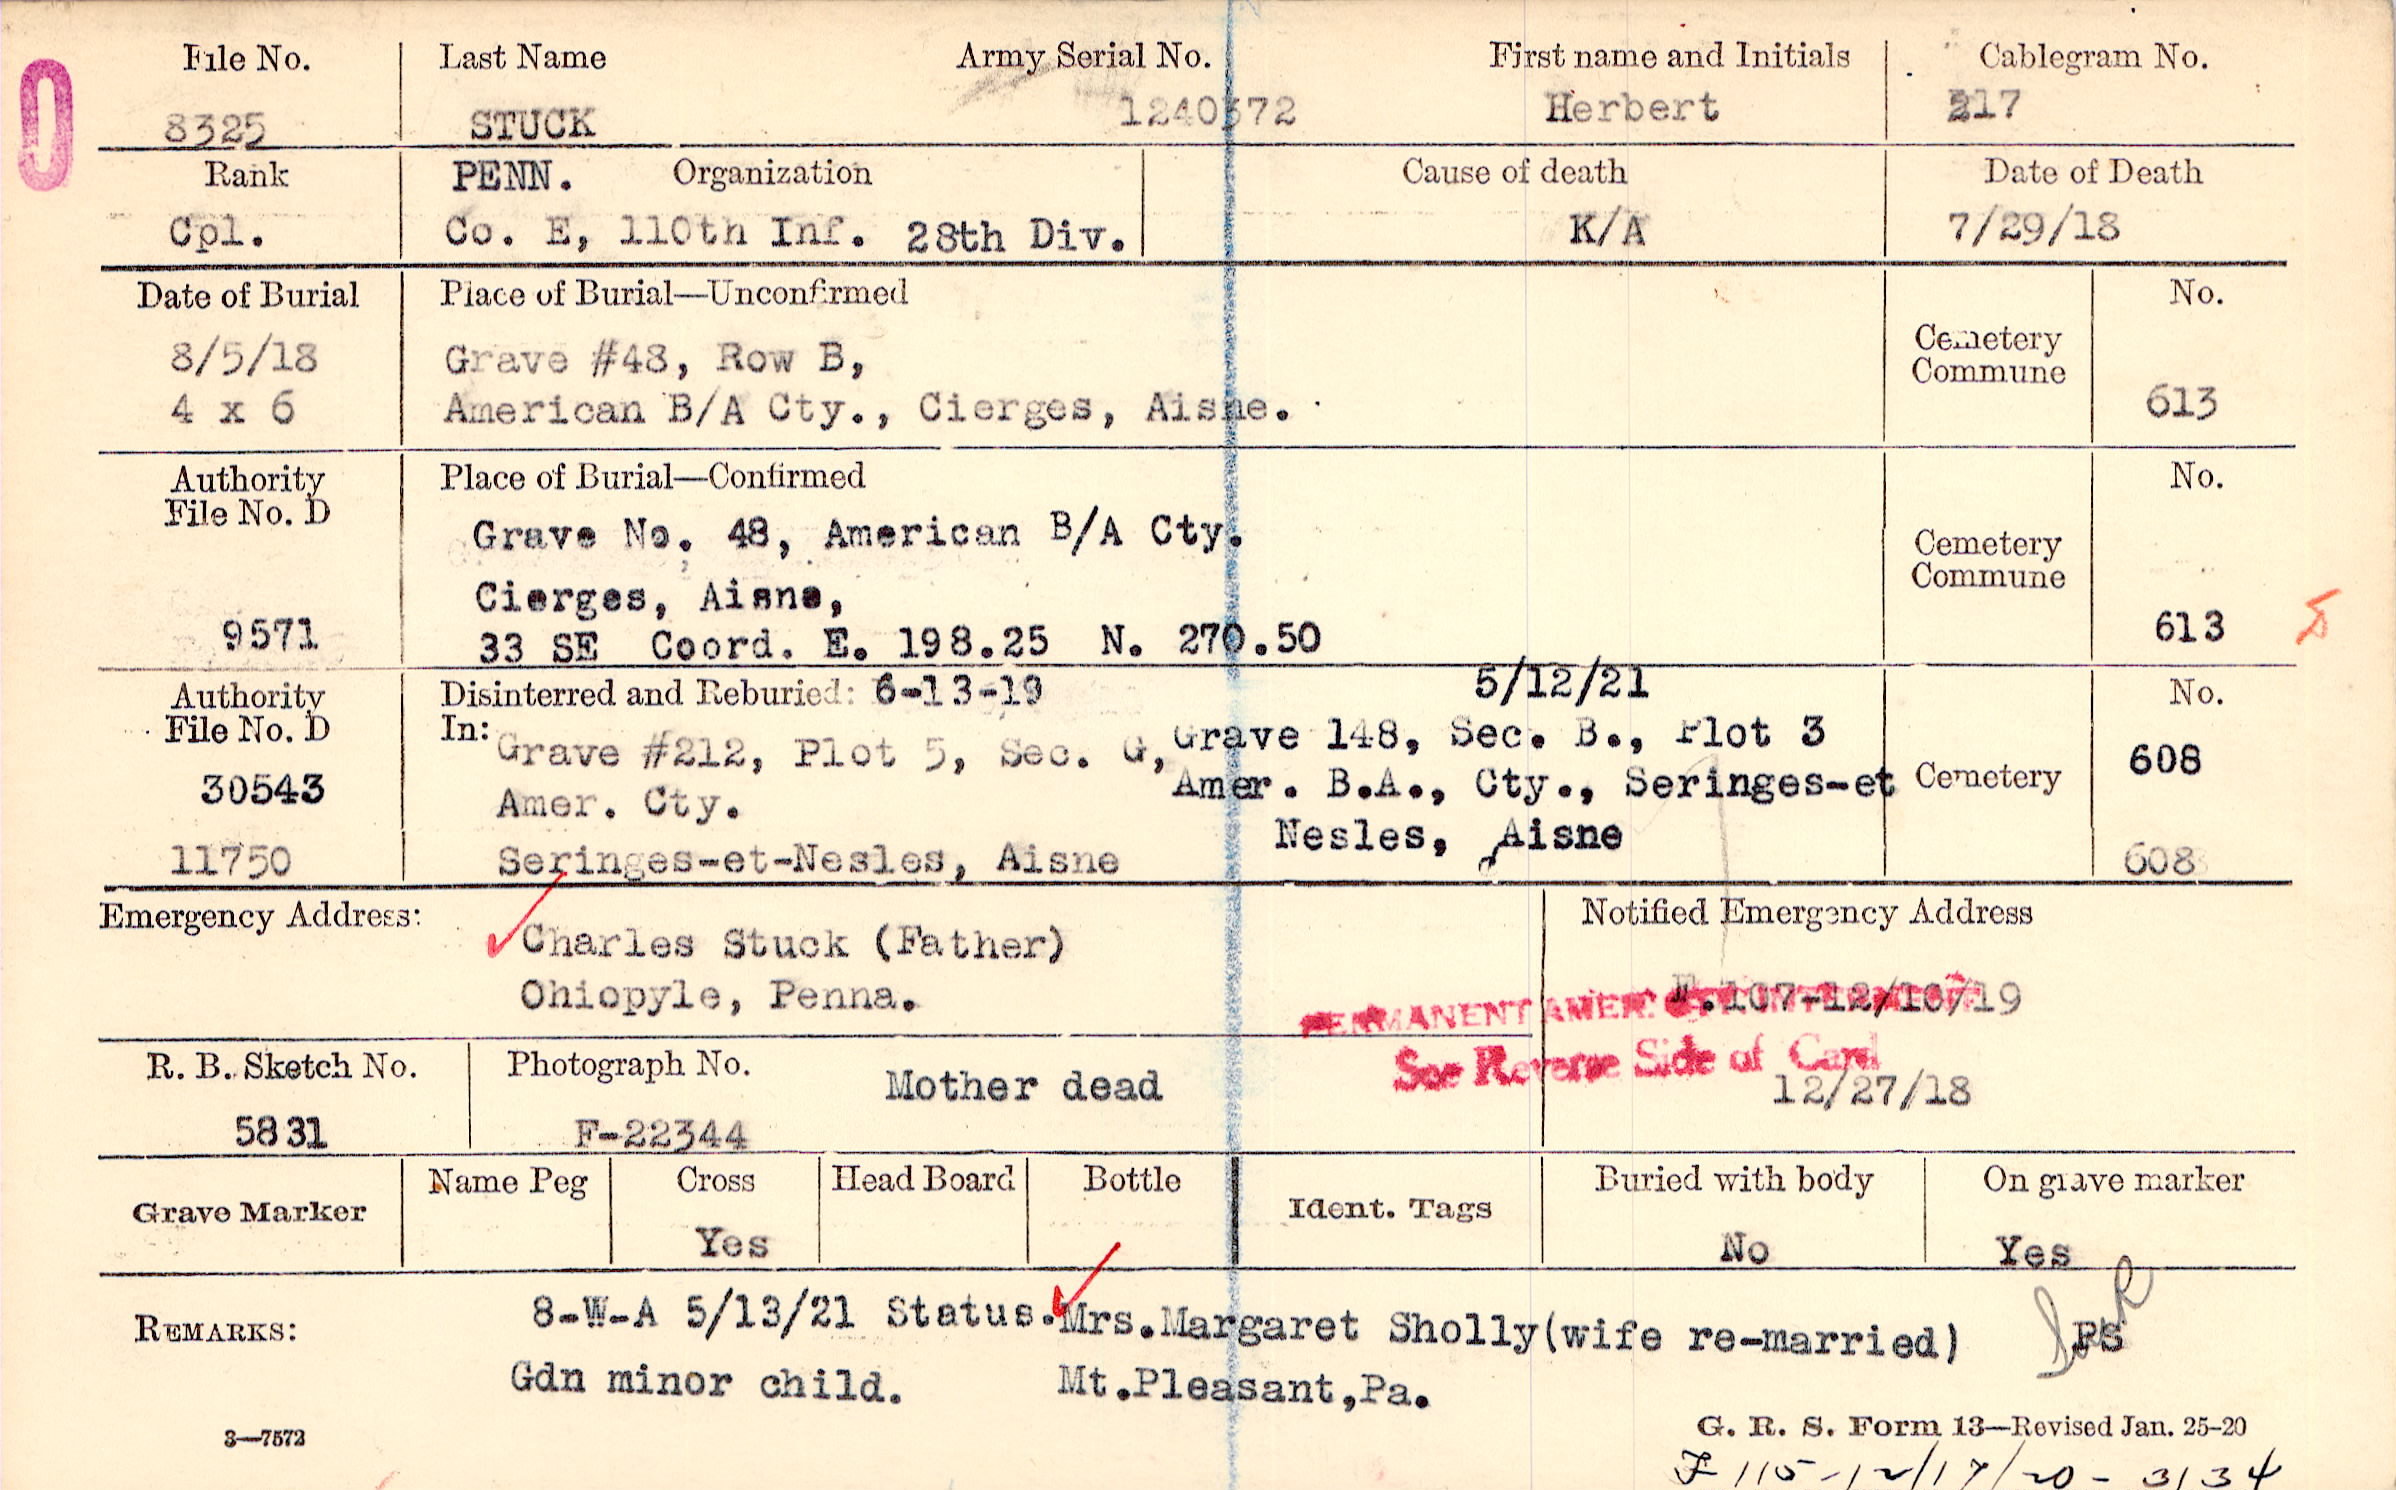 File No. Last Name Army Serial No. First name and Initials Cablegram No.
0
8325 STUCK 1240372 Herbert 217
Rank PENN. Organization Cause of death Date of Death
Cpl. Co. E, 110th Inf. 28th Div. K/A 7/29/18
Date of Burial Place of Burial—Unconfirmed No.
8/5/18 Grave #48, Row B, Cemetery
Commune
4 x 6 American B/A Cty., Cierges, Aisne. 613
Authority Place of Burial—Confirmed No.
File No. D
Grave No. 48, American B/A Cty. Cemetery
Commune
Cierges, Aisne,
9571 33 SE Coord. E. 198.25 N. 270.50 613
Authority Disinterred and Reburied: 6-13-19 5/12/21 No.
File No. D In: Grave #212, Plot 5, Sec. G, Grave 148, Sec. B., Plot 3 608
30543 Amer. Cty. Amer. B.A., Cty., Seringes-et Cemetery
Nesles, Aisne
11750 Seringes-et-Nesles, Aisne 608
Emergency Address: Notified Emergency Address
Charles Stuck (Father)
Ohiopyle, Penna. F.107-12/10/19
PERMANENT AMER.
See Reverse Side of Card
R. B. Sketch No. Photograph No. Mother dead 12/27/18
5831 F-22344
Grave Marker Name Peg Cross Head Board Bottle Ident. Tags Buried with body On grave marker
Yes No Yes
REMARKS: 8-W-A 5/13/21 Status. Mrs.Margaret Sholly(wife re-married) PS
Gdn minor child. Mt.Pleasant,Pa.
3—7572 G. R. S. Form 13—Revised Jan. 25-20
F 115-12/17/20-3134